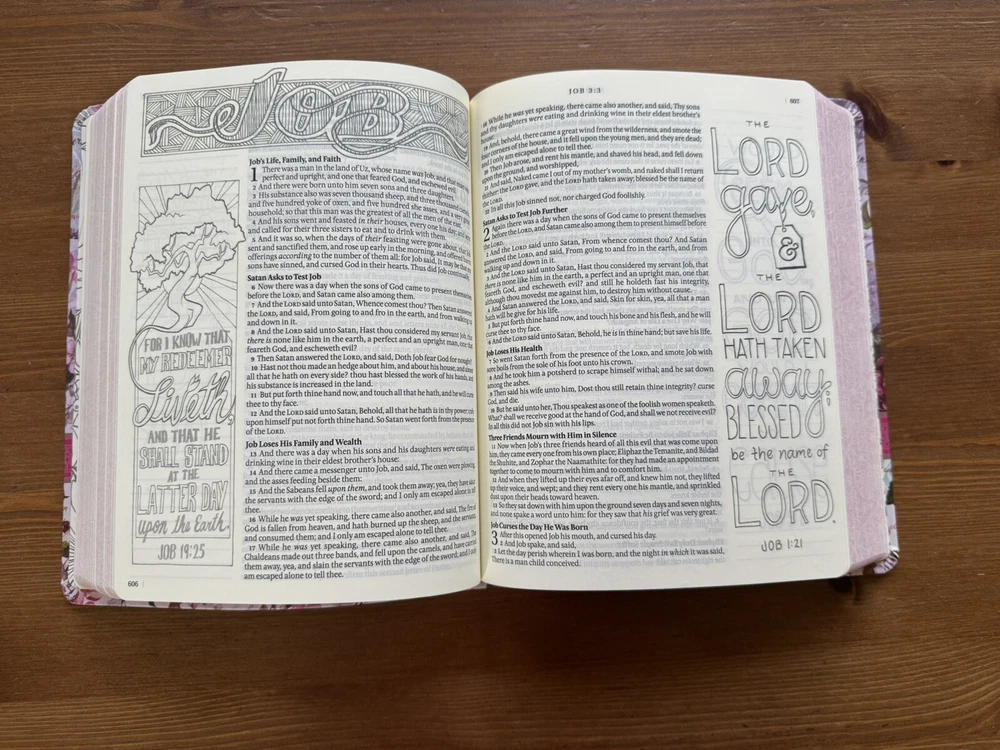 JOB
FOR I KNOW THAT
MY REDEEMER
Liveth,
AND THAT HE
SHALL STAND
AT THE
LATTER DAY
upon the Earth.
JOB 19:25
606
Job's Life, Family, and Faith
1 There was a man in the land of Uz, whose name was Job; and that man was
perfect and upright, and one that feared God, and eschewed evil.
2 And there were born unto him seven sons and three daughters.
3 His substance also was seven thousand sheep, and three thousand camels,
and five hundred yoke of oxen, and five hundred she asses, and a very great
household; so that this man was the greatest of all the men of the east.
4 And his sons went and feasted in their houses, every one his day; and sent
and called for their three sisters to eat and to drink with them.
5 And it was so, when the days of their feasting were gone about, that Job
sent and sanctified them, and rose up early in the morning, and offered burnt
offerings according to the number of them all: for Job said, It may be that my
sons have sinned, and cursed God in their hearts. Thus did Job continually.
Satan Asks to Test Job
6 Now there was a day when the sons of God came to present themselves
before the LORD, and Satan came also among them.
7 And the LORD said unto Satan, Whence comest thou? Then Satan answered
the LORD, and said, From going to and fro in the earth, and from walking up
and down in it.
8 And the LORD said unto Satan, Hast thou considered my servant Job, that
there is none like him in the earth, a perfect and an upright man, one that
feareth God, and escheweth evil?
9 Then Satan answered the LORD, and said, Doth Job fear God for nought?
10 Hast not thou made an hedge about him, and about his house, and about
all that he hath on every side? thou hast blessed the work of his hands, and
his substance is increased in the land.
11 But put forth thine hand now, and touch all that he hath, and he will curse
thee to thy face.
12 And the LORD said unto Satan, Behold, all that he hath is in thy power; only
upon himself put not forth thine hand. So Satan went forth from the presence
of the LORD.
Job Loses His Family and Wealth
13 And there was a day when his sons and his daughters were eating and
drinking wine in their eldest brother's house:
14 And there came a messenger unto Job, and said, The oxen were plowing,
and the asses feeding beside them:
15 And the Sabeans fell upon them, and took them away; yea, they have slain
the servants with the edge of the sword; and I only am escaped alone to tell
thee.
16 While he was yet speaking, there came also another, and said, The fire of
God is fallen from heaven, and hath burned up the sheep, and the servants,
and consumed them; and I only am escaped alone to tell thee.
17 While he was yet speaking, there came also another, and said, The
Chaldeans made out three bands, and fell upon the camels, and have carried
them away, yea, and slain the servants with the edge of the sword; and I only
am escaped alone to tell thee.
JOB 3:3
607
18 While he was yet speaking, there came also another, and said, Thy sons
and thy daughters were eating and drinking wine in their eldest brother's
house:
19 And, behold, there came a great wind from the wilderness, and smote the
four corners of the house, and it fell upon the young men, and they are dead;
and I only am escaped alone to tell thee.
20 Then Job arose, and rent his mantle, and shaved his head, and fell down
upon the ground, and worshipped,
21 And said, Naked came I out of my mother's womb, and naked shall I return
thither: the LORD gave, and the LORD hath taken away; blessed be the name of
the LORD.
22 In all this Job sinned not, nor charged God foolishly.
Satan Asks to Test Job Further
2 Again there was a day when the sons of God came to present themselves
before the LORD, and Satan came also among them to present himself before
the LORD.
2 And the LORD said unto Satan, From whence comest thou? And Satan
answered the LORD, and said, From going to and fro in the earth, and from
walking up and down in it.
3 And the LORD said unto Satan, Hast thou considered my servant Job, that
there is none like him in the earth, a perfect and an upright man, one that
feareth God, and escheweth evil? and still he holdeth fast his integrity,
although thou movedst me against him, to destroy him without cause.
4 And Satan answered the LORD, and said, Skin for skin, yea, all that a man
hath will he give for his life.
5 But put forth thine hand now, and touch his bone and his flesh, and he will
curse thee to thy face.
6 And the LORD said unto Satan, Behold, he is in thine hand; but save his life.
Job Loses His Health
7 So went Satan forth from the presence of the LORD, and smote Job with
sore boils from the sole of his foot unto his crown.
8 And he took him a potsherd to scrape himself withal; and he sat down
among the ashes.
9 Then said his wife unto him, Dost thou still retain thine integrity? curse
God, and die.
10 But he said unto her, Thou speakest as one of the foolish women speaketh.
What? shall we receive good at the hand of God, and shall we not receive evil?
In all this did not Job sin with his lips.
Three Friends Mourn with Him in Silence
11 Now when Job's three friends heard of all this evil that was come upon
him, they came every one from his own place; Eliphaz the Temanite, and Bildad
the Shuhite, and Zophar the Naamathite: for they had made an appointment
together to come to mourn with him and to comfort him.
12 And when they lifted up their eyes afar off, and knew him not, they lifted
up their voice, and wept; and they rent every one his mantle, and sprinkled
dust upon their heads toward heaven.
13 So they sat down with him upon the ground seven days and seven nights,
and none spake a word unto him: for they saw that his grief was very great.
Job Curses the Day He Was Born
3 After this opened Job his mouth, and cursed his day.
2 And Job spake, and said,
3 Let the day perish wherein I was born, and the night in which it was said,
There is a man child conceived.
THE
LORD
gave,
&
THE
LORD
HATH TAKEN
away;
BLESSED
be the name of
THE
LORD.
JOB 1:21